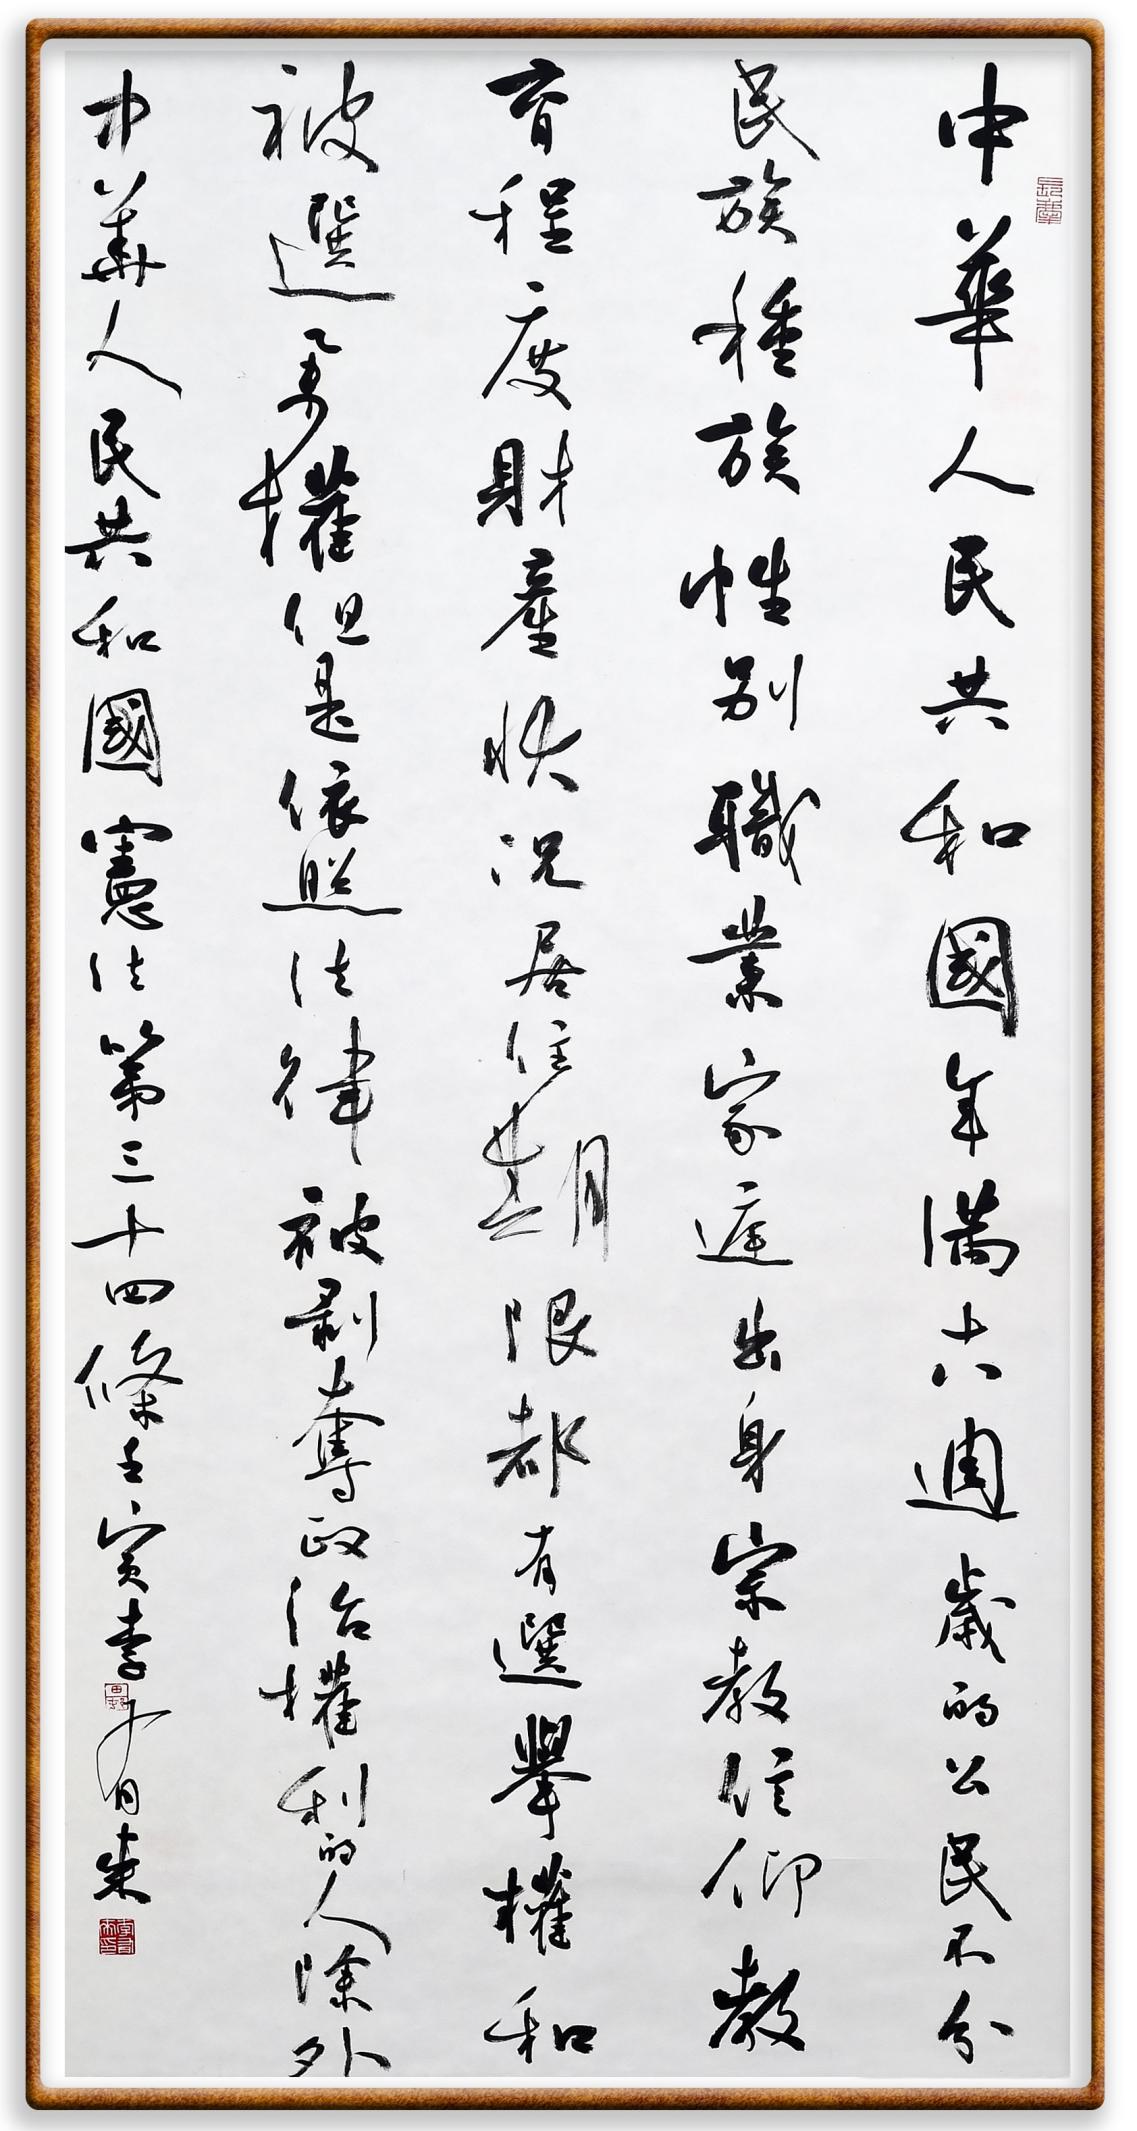 中華人民共和國年滿十八週歲的公民不分
民族種族性别職業家庭出身宗教信仰教
育程度財產狀況居住期限都有選舉權和
被選舉權但是依照法律被剥奪政治權利的人除外
中華人民共和國憲法第三十四條壬寅李有来